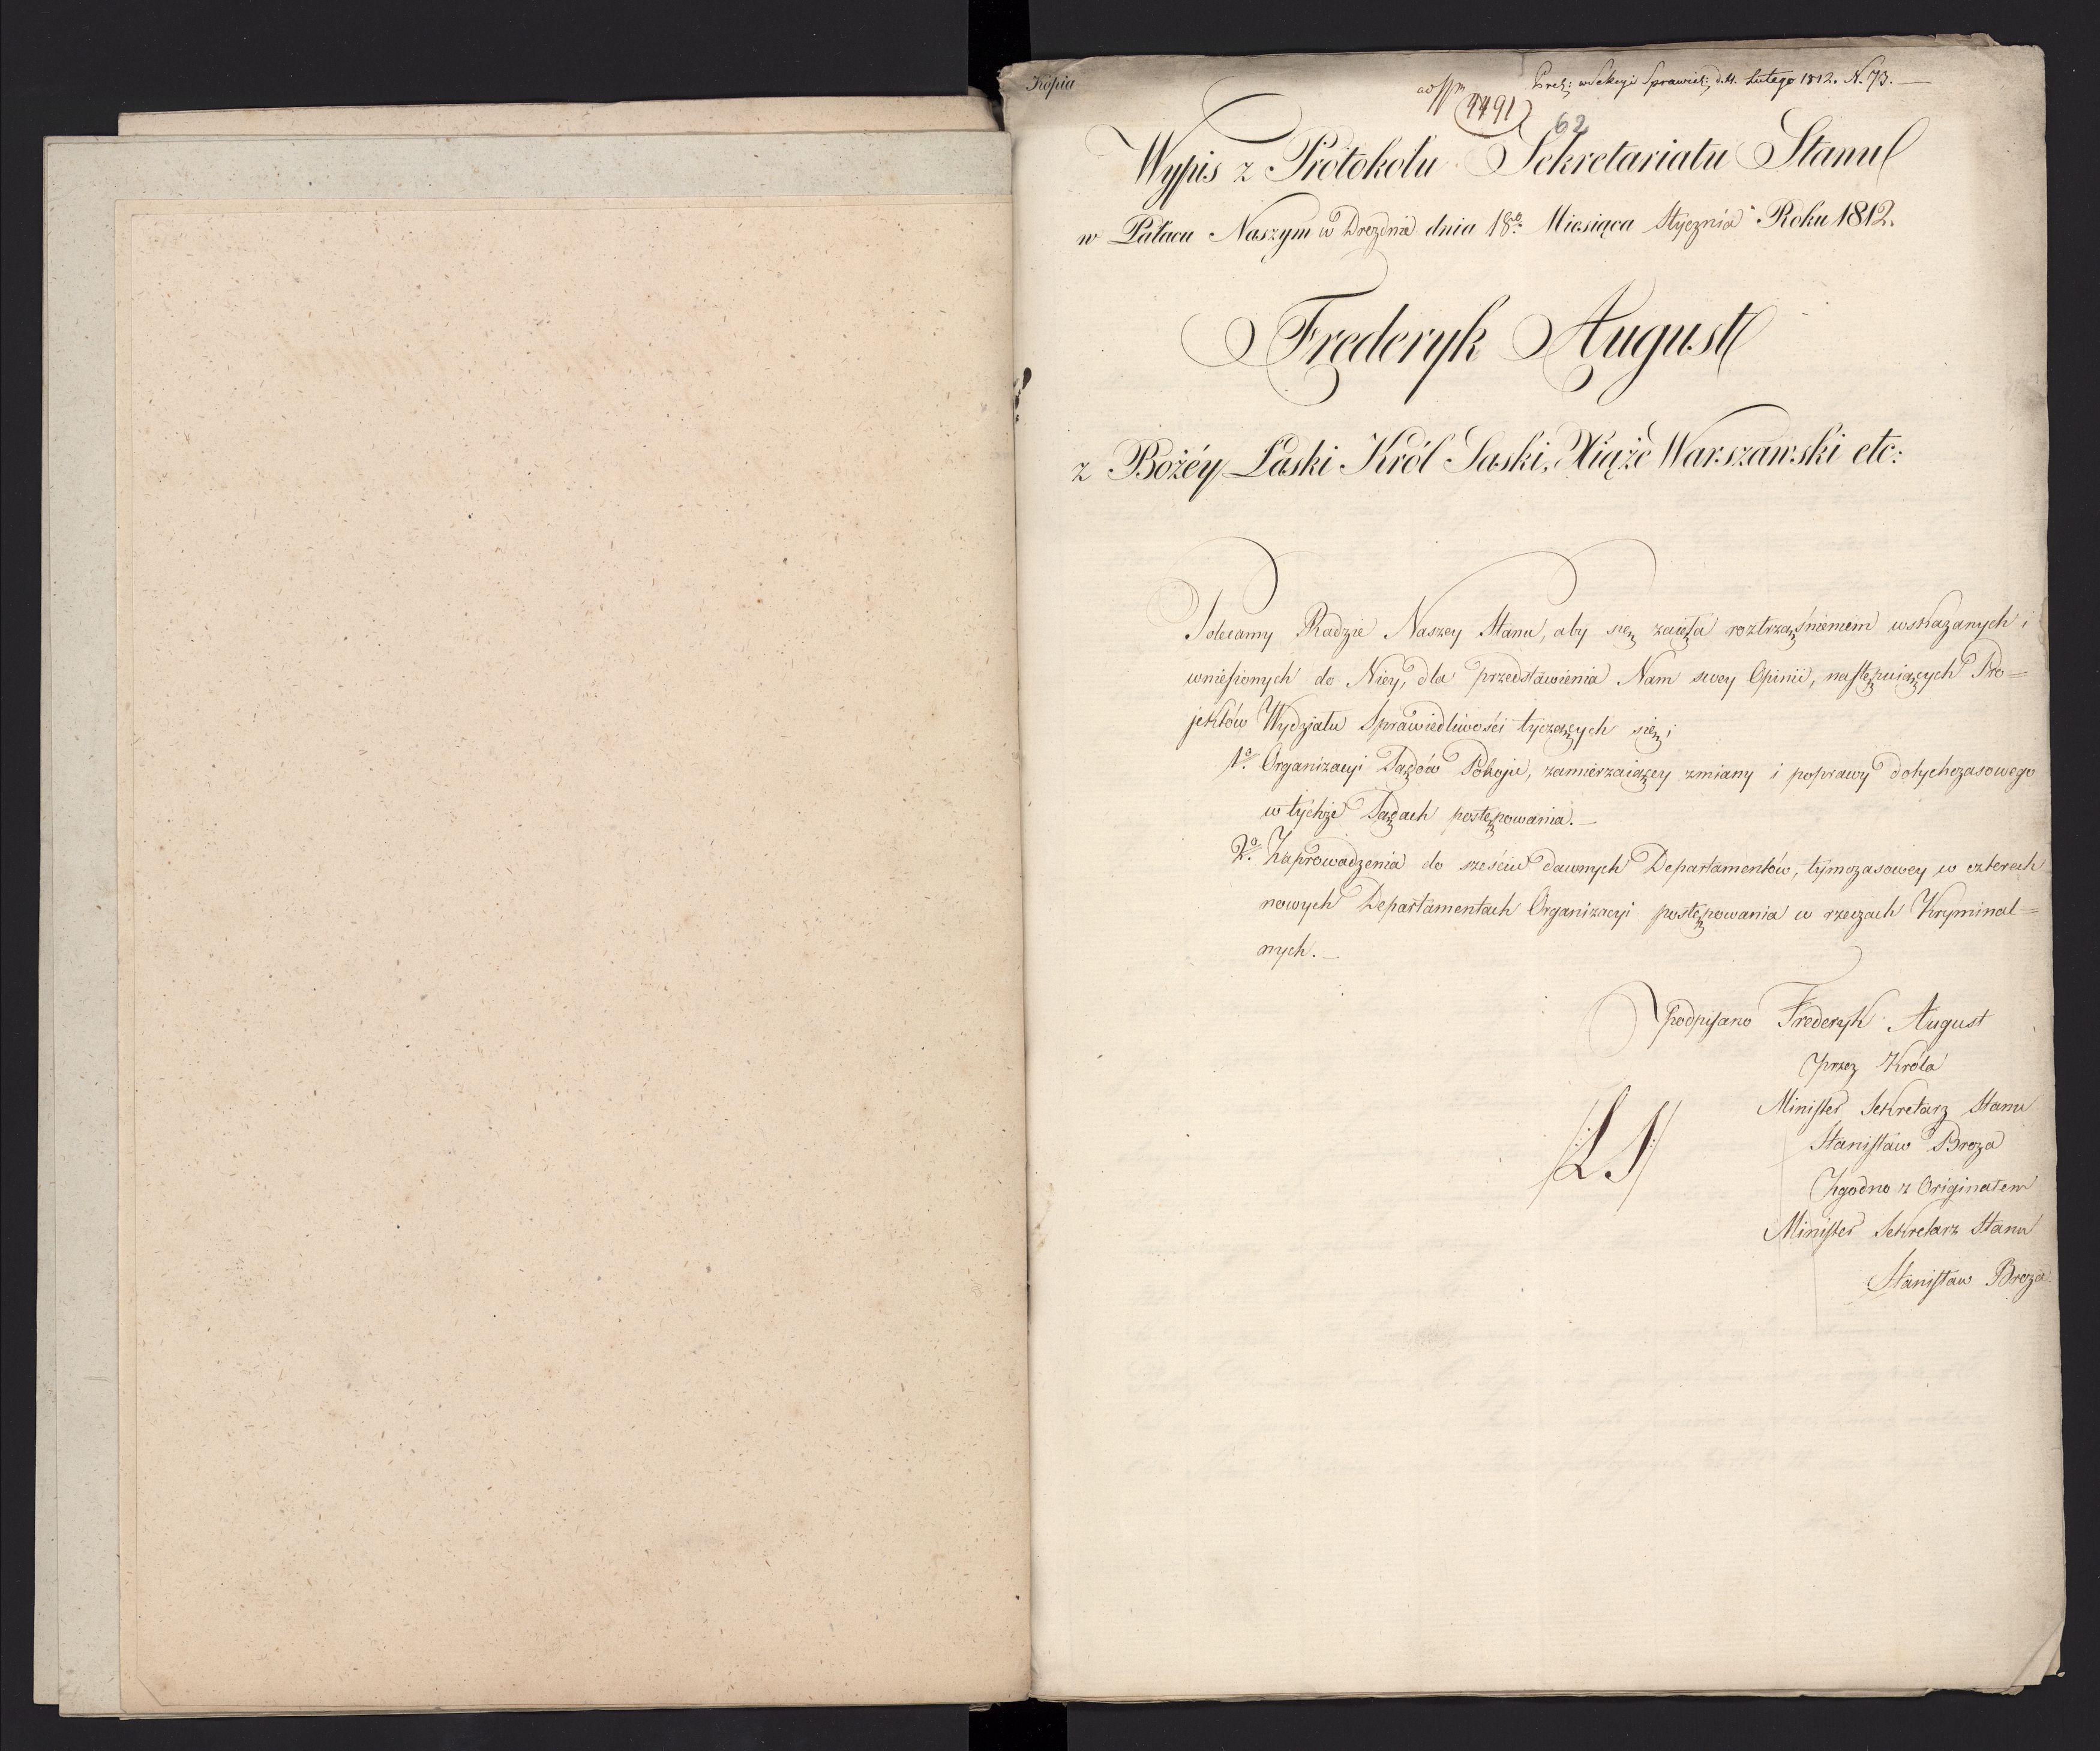 Kopia
Prez: w Sekcyi Sprawied: d. 4. Lutego 1812. N. 73.
4491
62
Wypis z Protokołu Sekretariatu Stanu
w Pałacu Naszym w Dreźnie dnia 18go Miesiąca Stycznia Roku 1812.
Frederyk August
z Bożéy Łaski Król Saski, Xiążę Warszawski etc:
Polecamy Radzie Naszey Stanu, aby się zaięła roztrząśnieniem wskazanych i
wniesionych do Niey, dla przedstawienia Nam swey Opinii, następuiących Pro=
jektów Wydziału Sprawiedliwości tyczących się;
1o. Organizacyi Sądów Pokoju, zamierzaiącey zmiany i poprawy dotychczasowego
w tychże Sądach postępowania. —
2o. Zaprowadzenia do sześciu dawnych Departamentów, tymczasowey w czterech
nowych Departamentach Organizacyi postępowania w rzeczach Kryminal=
nych. —
podpisano Frederyk August
przez Króla
Minister Sekretarz Stanu
/:LS:/
Stanisław Breza
Zgodno z Originałem
Minister Sekretarz Stanu
Stanisław Breza